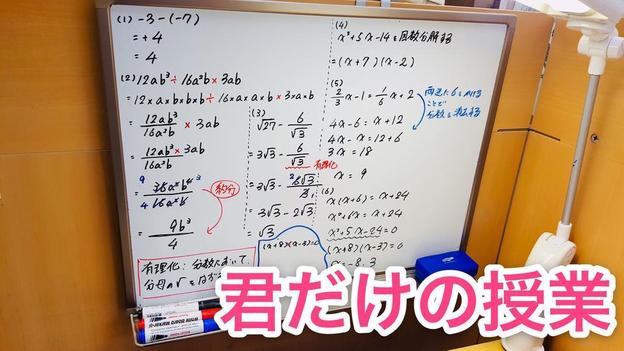 (1) -3-(-7)
= +4
= 4
(2) 12ab³÷16a²b×3ab
=12×a×b×b×b÷16×a×a×b×3×a×b
= 12ab³/16a²b × 3ab
= 12ab³/16a²b × 3ab
= 36a²b⁴/16a²b
約分
9 4
= 9b³/4
有理化:分数において、
分母の√をはずす
(3)
√27 - 6/√3
= 3√3 - 6/√3
有理化
= 3√3 - 6√3/3
2
= 3√3 - 2√3
= √3
(4)
x²+5x-14を因数分解する
=(x+7)(x-2)
(5)
2/3x-1=1/6x+2
両辺に6をかける
ことで
分数を消去する
4x-6=x+12
4x-x=12+6
3x=18
x=9
(6)
x(x+6)=x+24
x²+6x=x+24
x²+5x-24=0
(x+8)(x-3)=0
x=-8,3
(x+8)(x-3)=0
君だけの授業